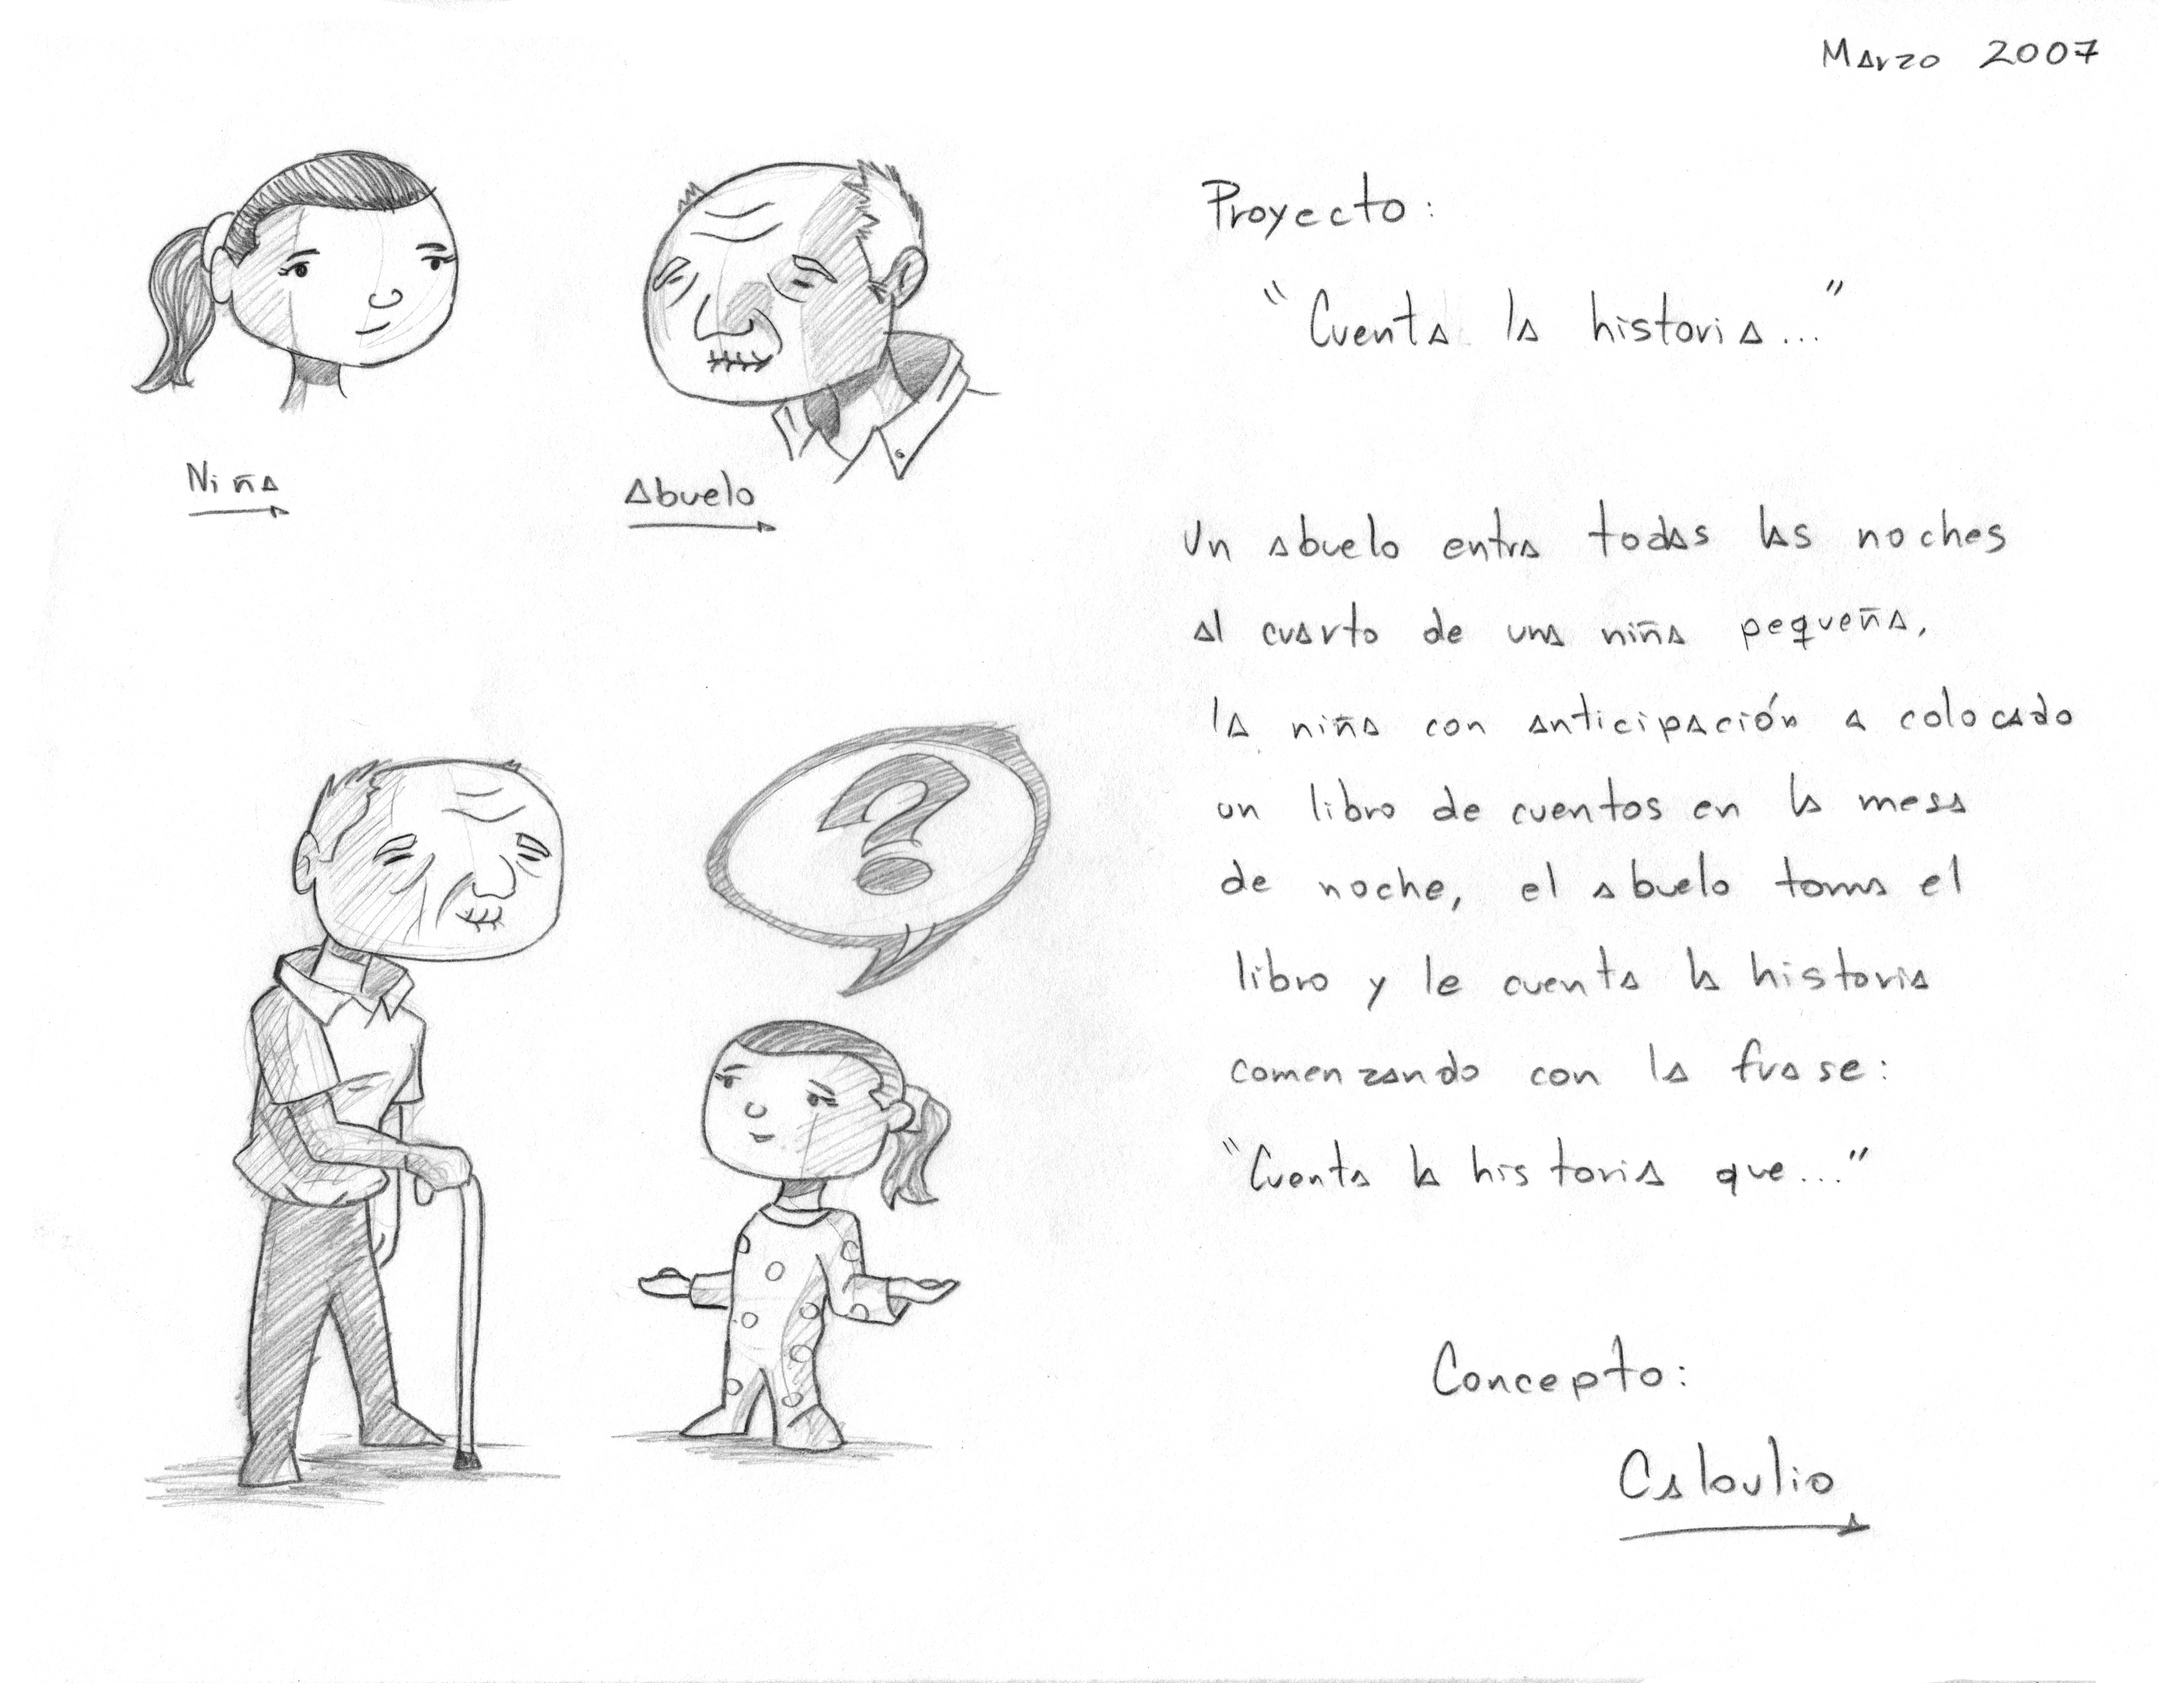 Marzo 2007
Proyecto:
"Cuenta la historia..."
Niña
Abuelo
Un abuelo entra todas las noches
al cuarto de una niña pequeña,
la niña con anticipación a colocado
un libro de cuentos en la mesa
de noche, el abuelo toma el
libro y le cuenta la historia
comenzando con la frase:
"Cuenta la historia que..."
?
Concepto:
Caloulio